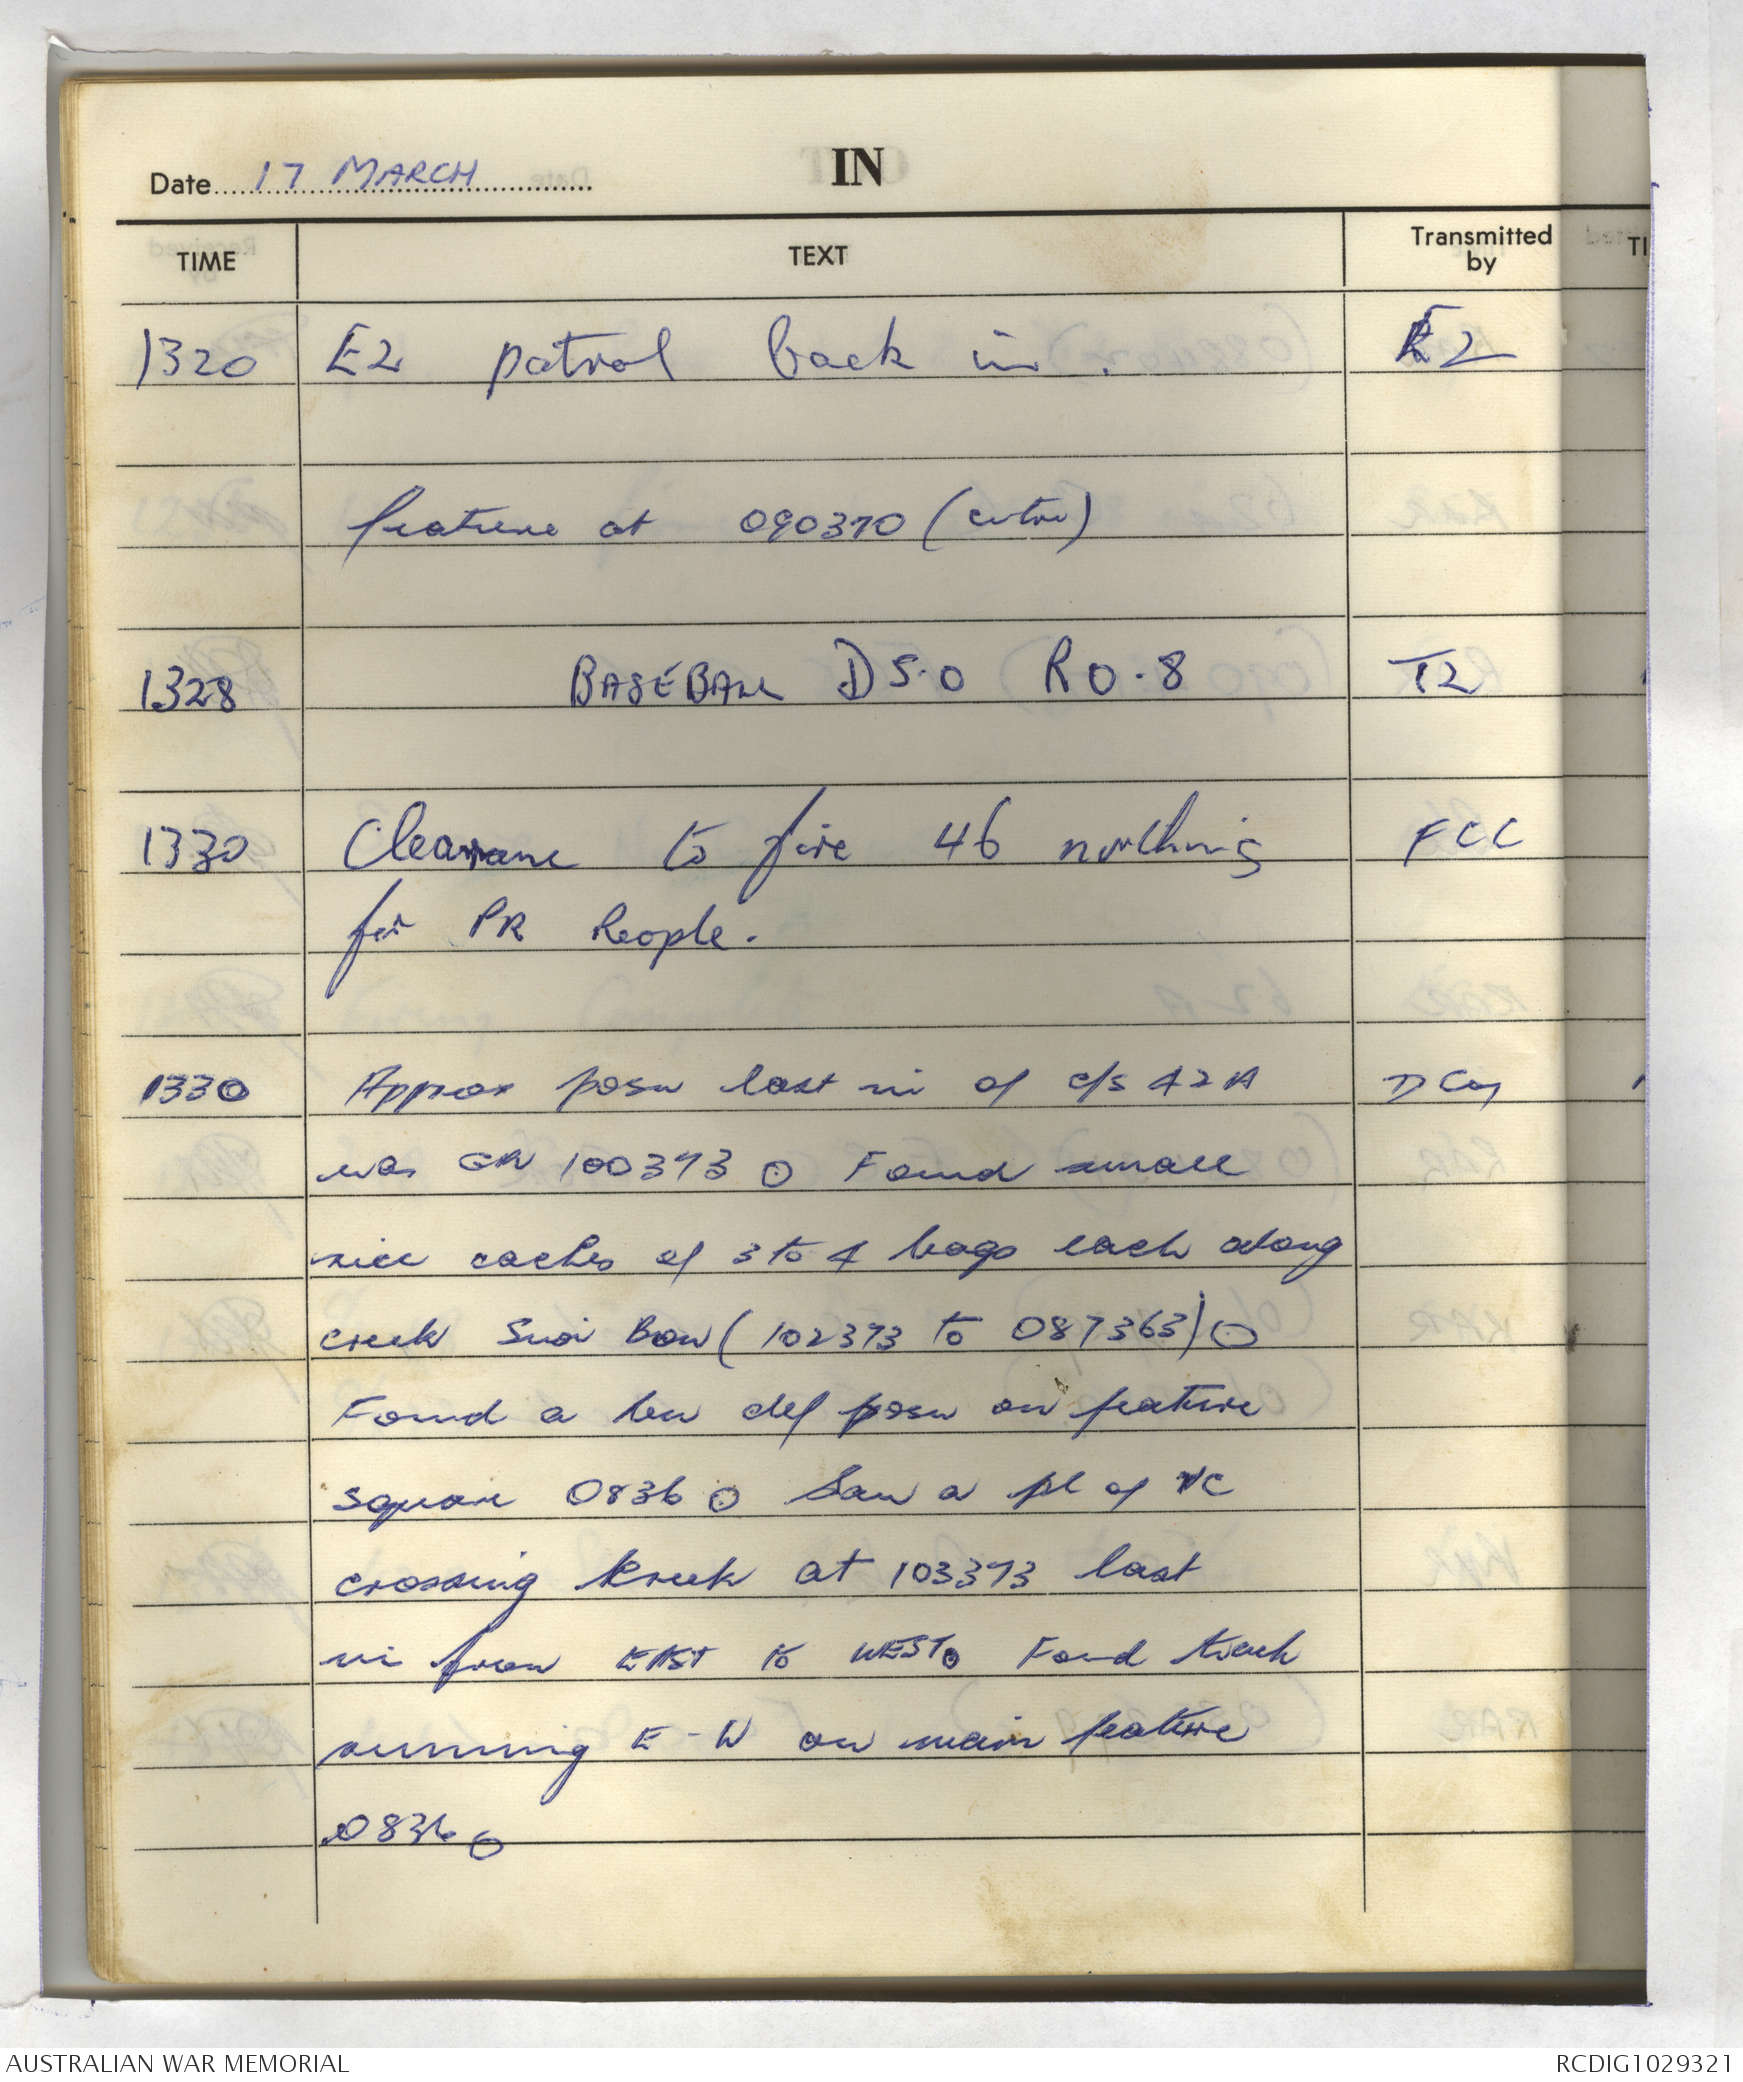 Date 17 MARCH
IN
TIME TEXT Transmitted by
1320 E2 patrol back in. E2
feature at 090370 (centre)
1328 BASEBALL DS.O RO.8 T2
1330 Clearance to fire 46 northing FCC
for PR People.
1330 Approx posn last ni of c/s 42A D Coy
was GR 100373 ⊙ Found small
rice caches of 3 to 4 bags each along
creek Suoi Bon (102373 to 087363) ⊙
Found a Coy def posn on feature
square 0836 ⊙ Saw a pl of VC
crossing creek at 103373 last
ni from EAST to WEST ⊙ Found track
running E-W on main feature
0836 ⊙
AUSTRALIAN WAR MEMORIAL
RCDIG1029321